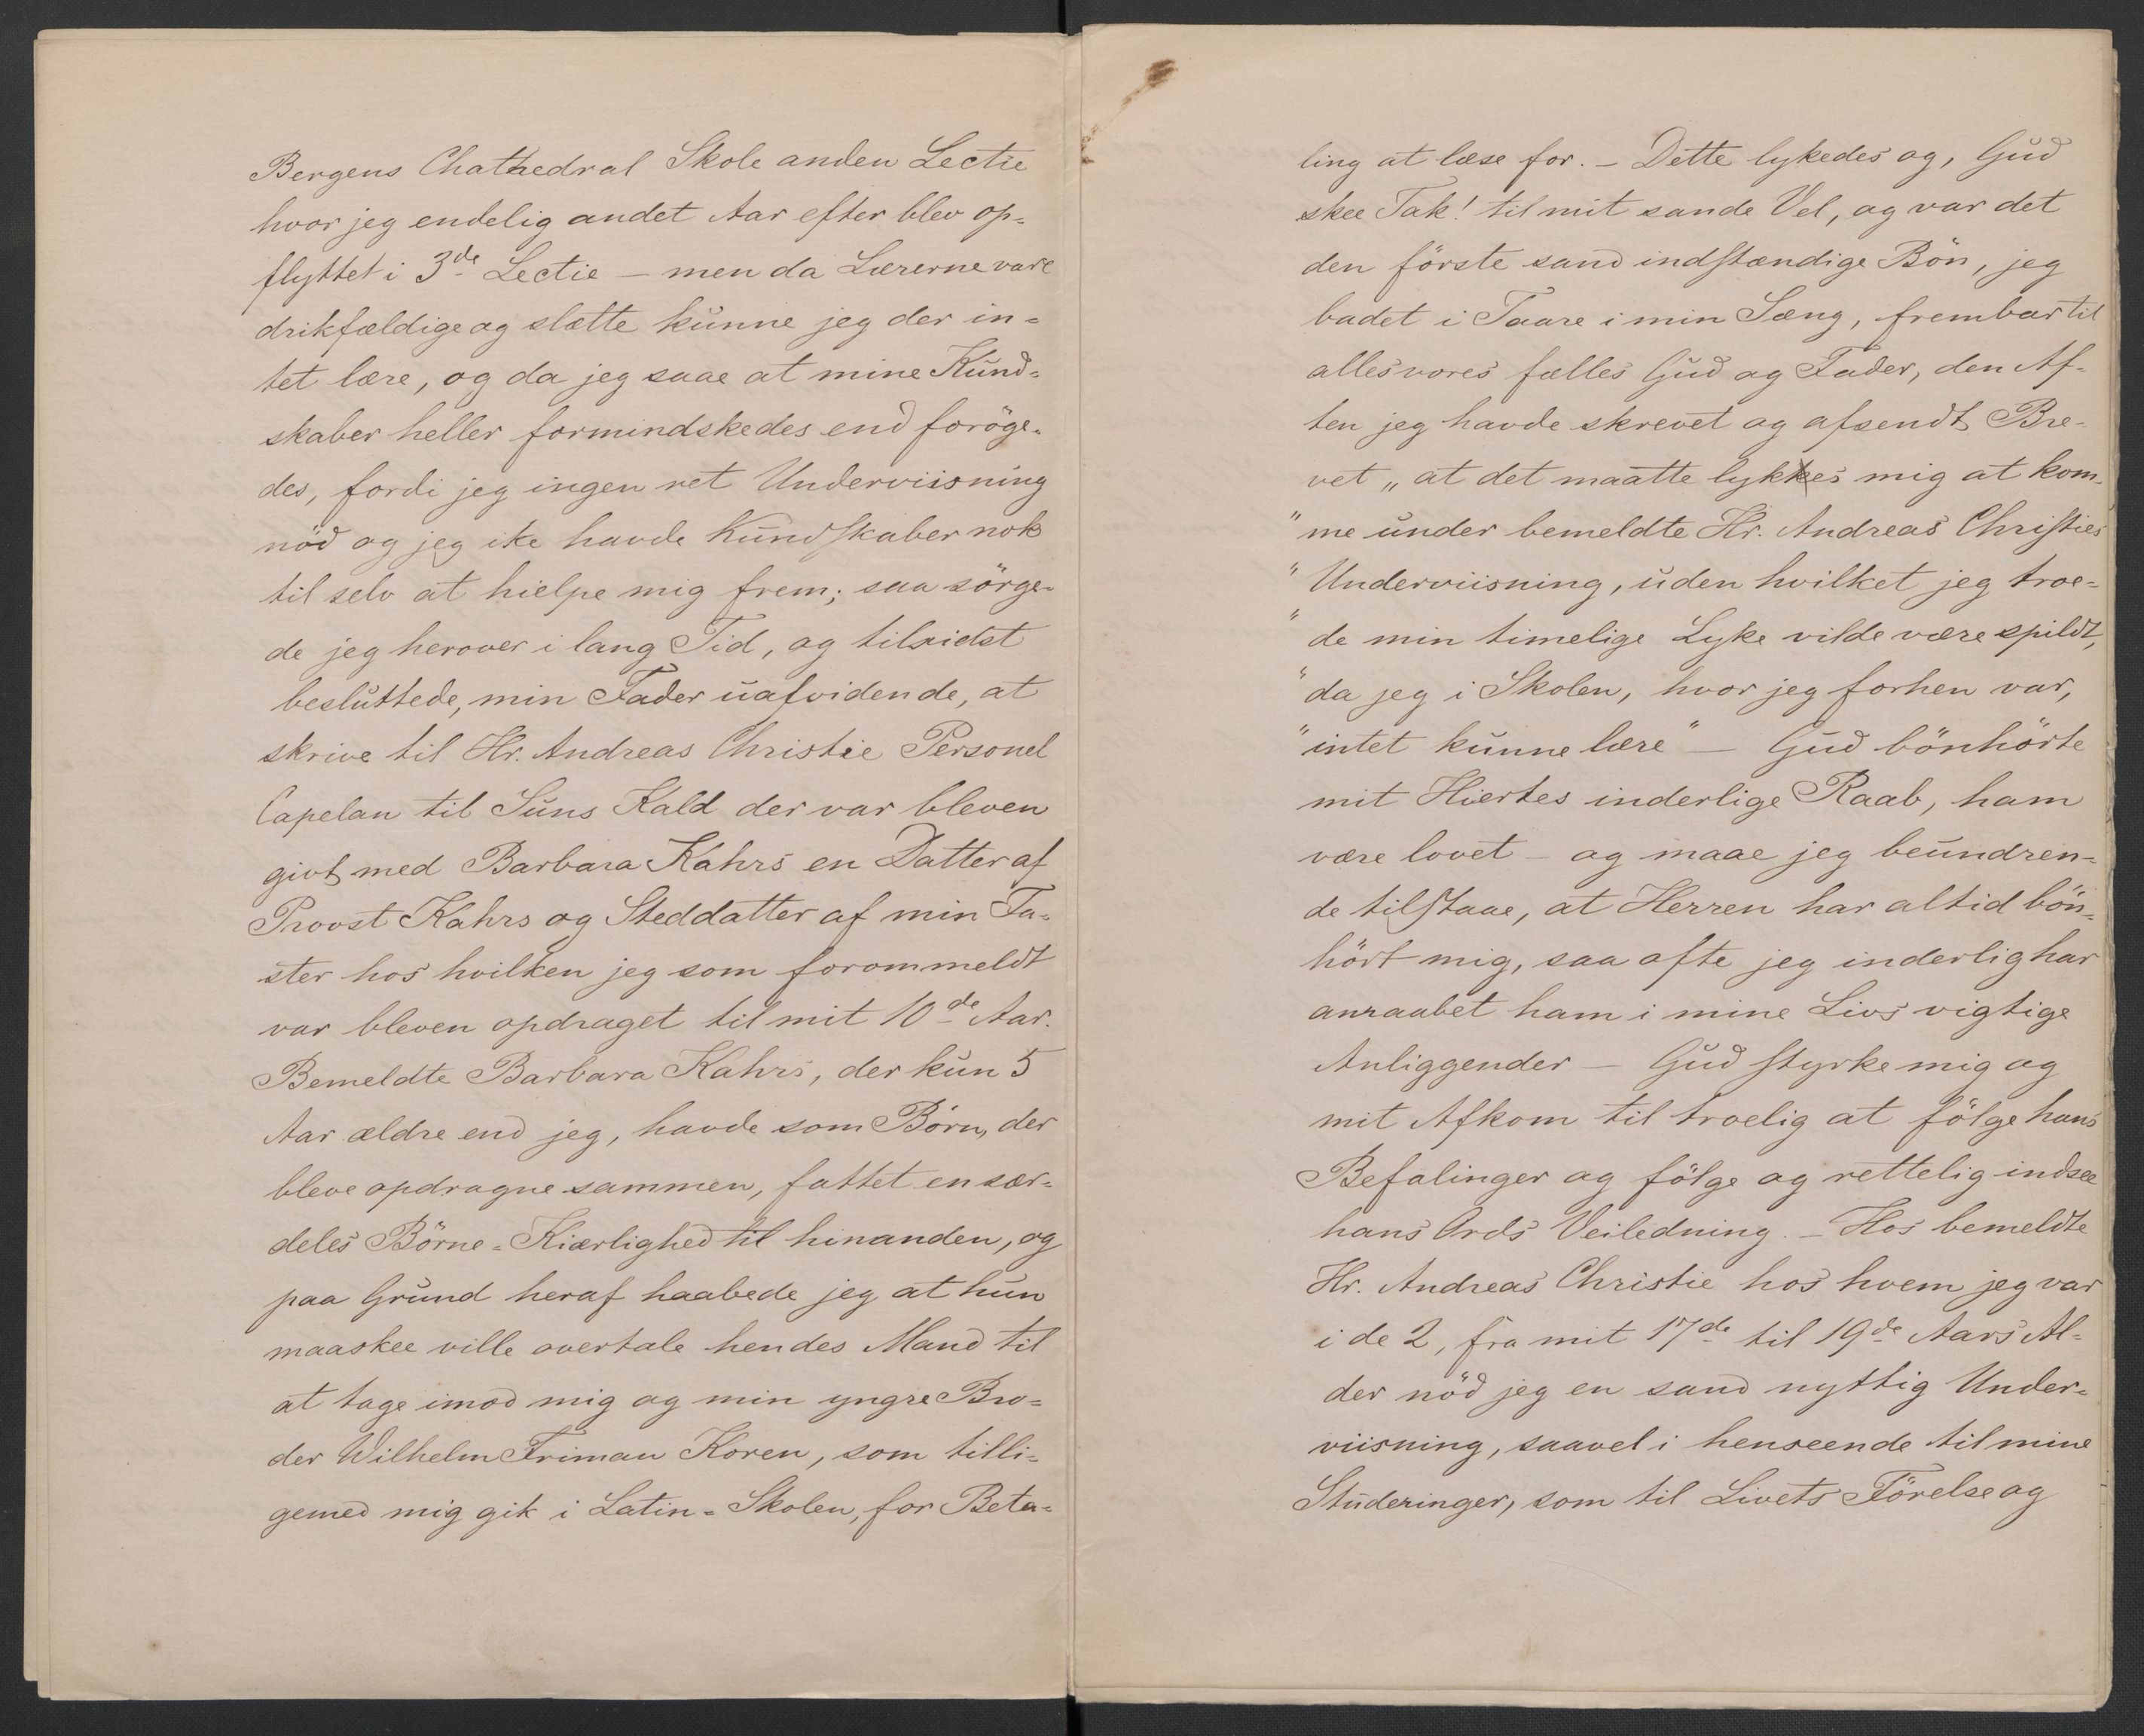 Bergens Chathedral Skole anden Lectie
hvor jeg endelig andet Aar efter blev op-
flyttet i 3de Lectie — men da Lærerne vare
drikfældige og slætte kunne jeg der in-
tet lære, og da jeg saae at mine Kund-
skaber heller formindskedes end foröge-
des, fordi jeg ingen ret Underviisning
nöd og jeg ike havde Kundskaber nok
til selv at hielpe mig frem; saa sörge-
de jeg herover i lang Tid, og tilsidst
besluttede, min Fader uafvidende, at
skrive til Hr. Andreas Christie Personel
Capelan til Suns Kald der var bleven
givt med Barbara Kahrs en Datter af
Provst Kahrs og Steddatter af min Fa-
ster hos hvilken jeg som forommeldt
var bleven opdraget til mit 10de Aar.
Bemeldte Barbara Kahrs, der kun 5
Aar ældre end jeg, havde som Börn, der
bleve opdragne sammen, fattet en sær-
deles Börne-Kiærlighed til hinanden, og
paa Grund heraf haabede jeg at hun
maaskee ville overtale hendes Mand til
at tage imod mig og min yngre Bro-
der Wilhelm Friman Koren, som tilli-
gemed mig gik i Latin-Skolen, for Beta-
ling at læse for. – Dette lykedes og, Gud
skee Tak! til mit sande Vel, og var det
den förste sand indstændige Bön, jeg
badet i Taare i min Sæng, frembar til
alles vores fælles Gud og Fader, den Af-
ten jeg havde skrevet og afsendt Bre-
vet „at det maatte lykkes mig at kom-
"me under bemeldte Hr. Andreas Christies
"Underviisning, uden hvilket jeg troe-
"de min timelige Lyke vilde være spildt,
"da jeg i Skolen, hvor jeg forhen var,
"intet kunne lære" — Gud bönhörte
mit Hiertes inderlige Raab, ham
være lovet – og maae jeg beundren-
de tilstaae, at Herren har altid bön-
hört mig, saa ofte jeg inderlig har
anraabet ham i mine Livs vigtige
Anliggender — Gud styrke mig og
mit Afkom til troelig at fölge hans
Befalinger og fölge og rettelig indsee
hans Ords Veiledning. – Hos bemeldte
Hr. Andreas Christie hos hvem jeg var
i de 2, fra mit 17de til 19de Aars Al-
der nöd jeg en sand nyttig Under-
viisning, saavel i henseende til mine
Studeringer, som til Livets Förelse og